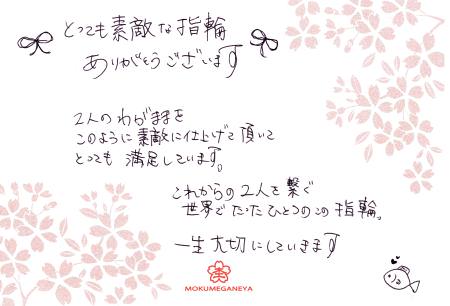 とっても素敵な指輪
ありがとうございます
2人のわがままを
このように素敵に仕上げて頂いて
とっても満足しています。
これからの2人を繋ぐ
世界でたったひとつのこの指輪。
一生大切にしていきます
MOKUMEGANEYA